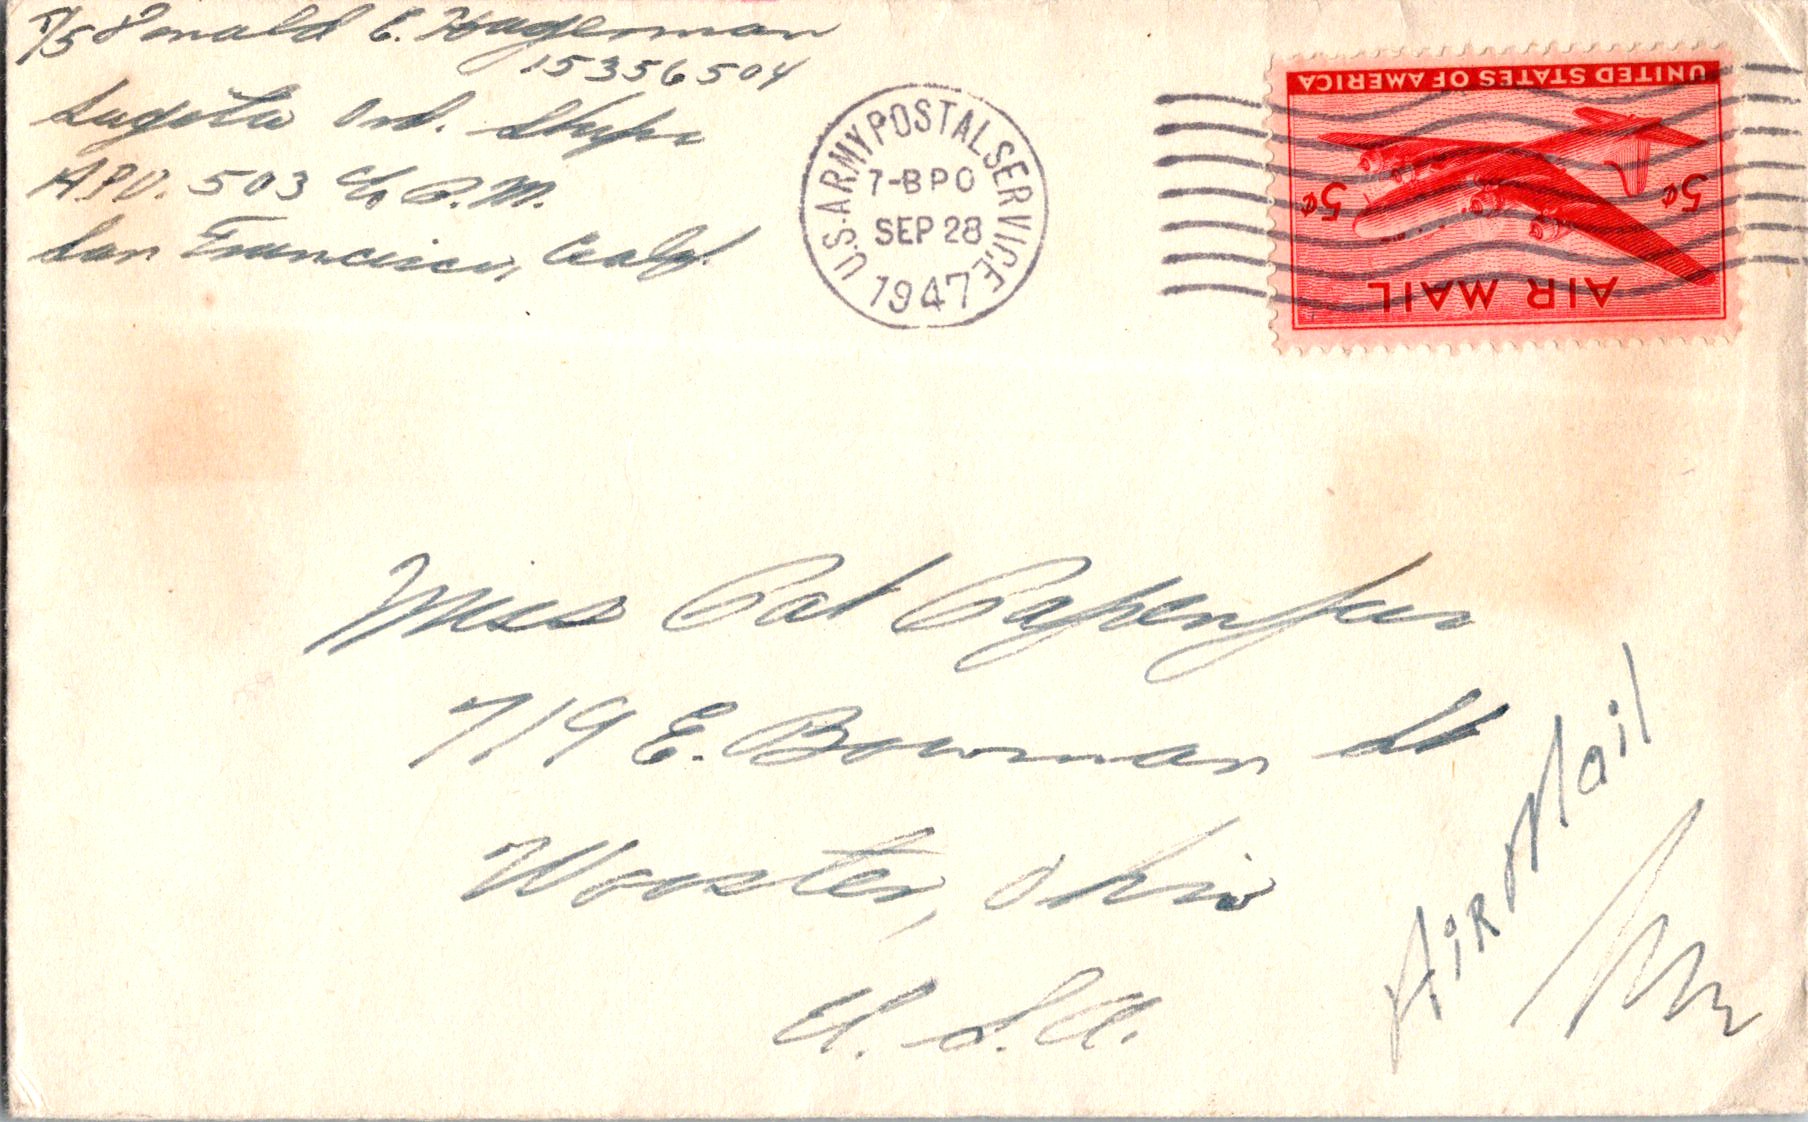 T/5 Donald E. Hagerman
15356504
Sugita Ord. Shops
A.P.O. 503 c/o P.M.
San Francisco, Calif.
U.S. ARMY POSTAL SERVICE
7-BPO
SEP 28
1947
UNITED STATES OF AMERICA
5¢ 5¢
AIR MAIL
Miss Pat Papenfus
719 E. Bowman St
Wooster, Ohio
U.S.A.
AiR Mail